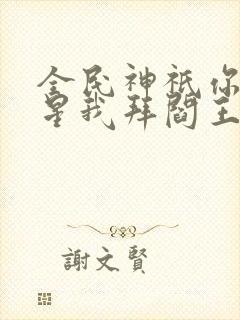 全民神祇你
星我拜閻王
謝文賢